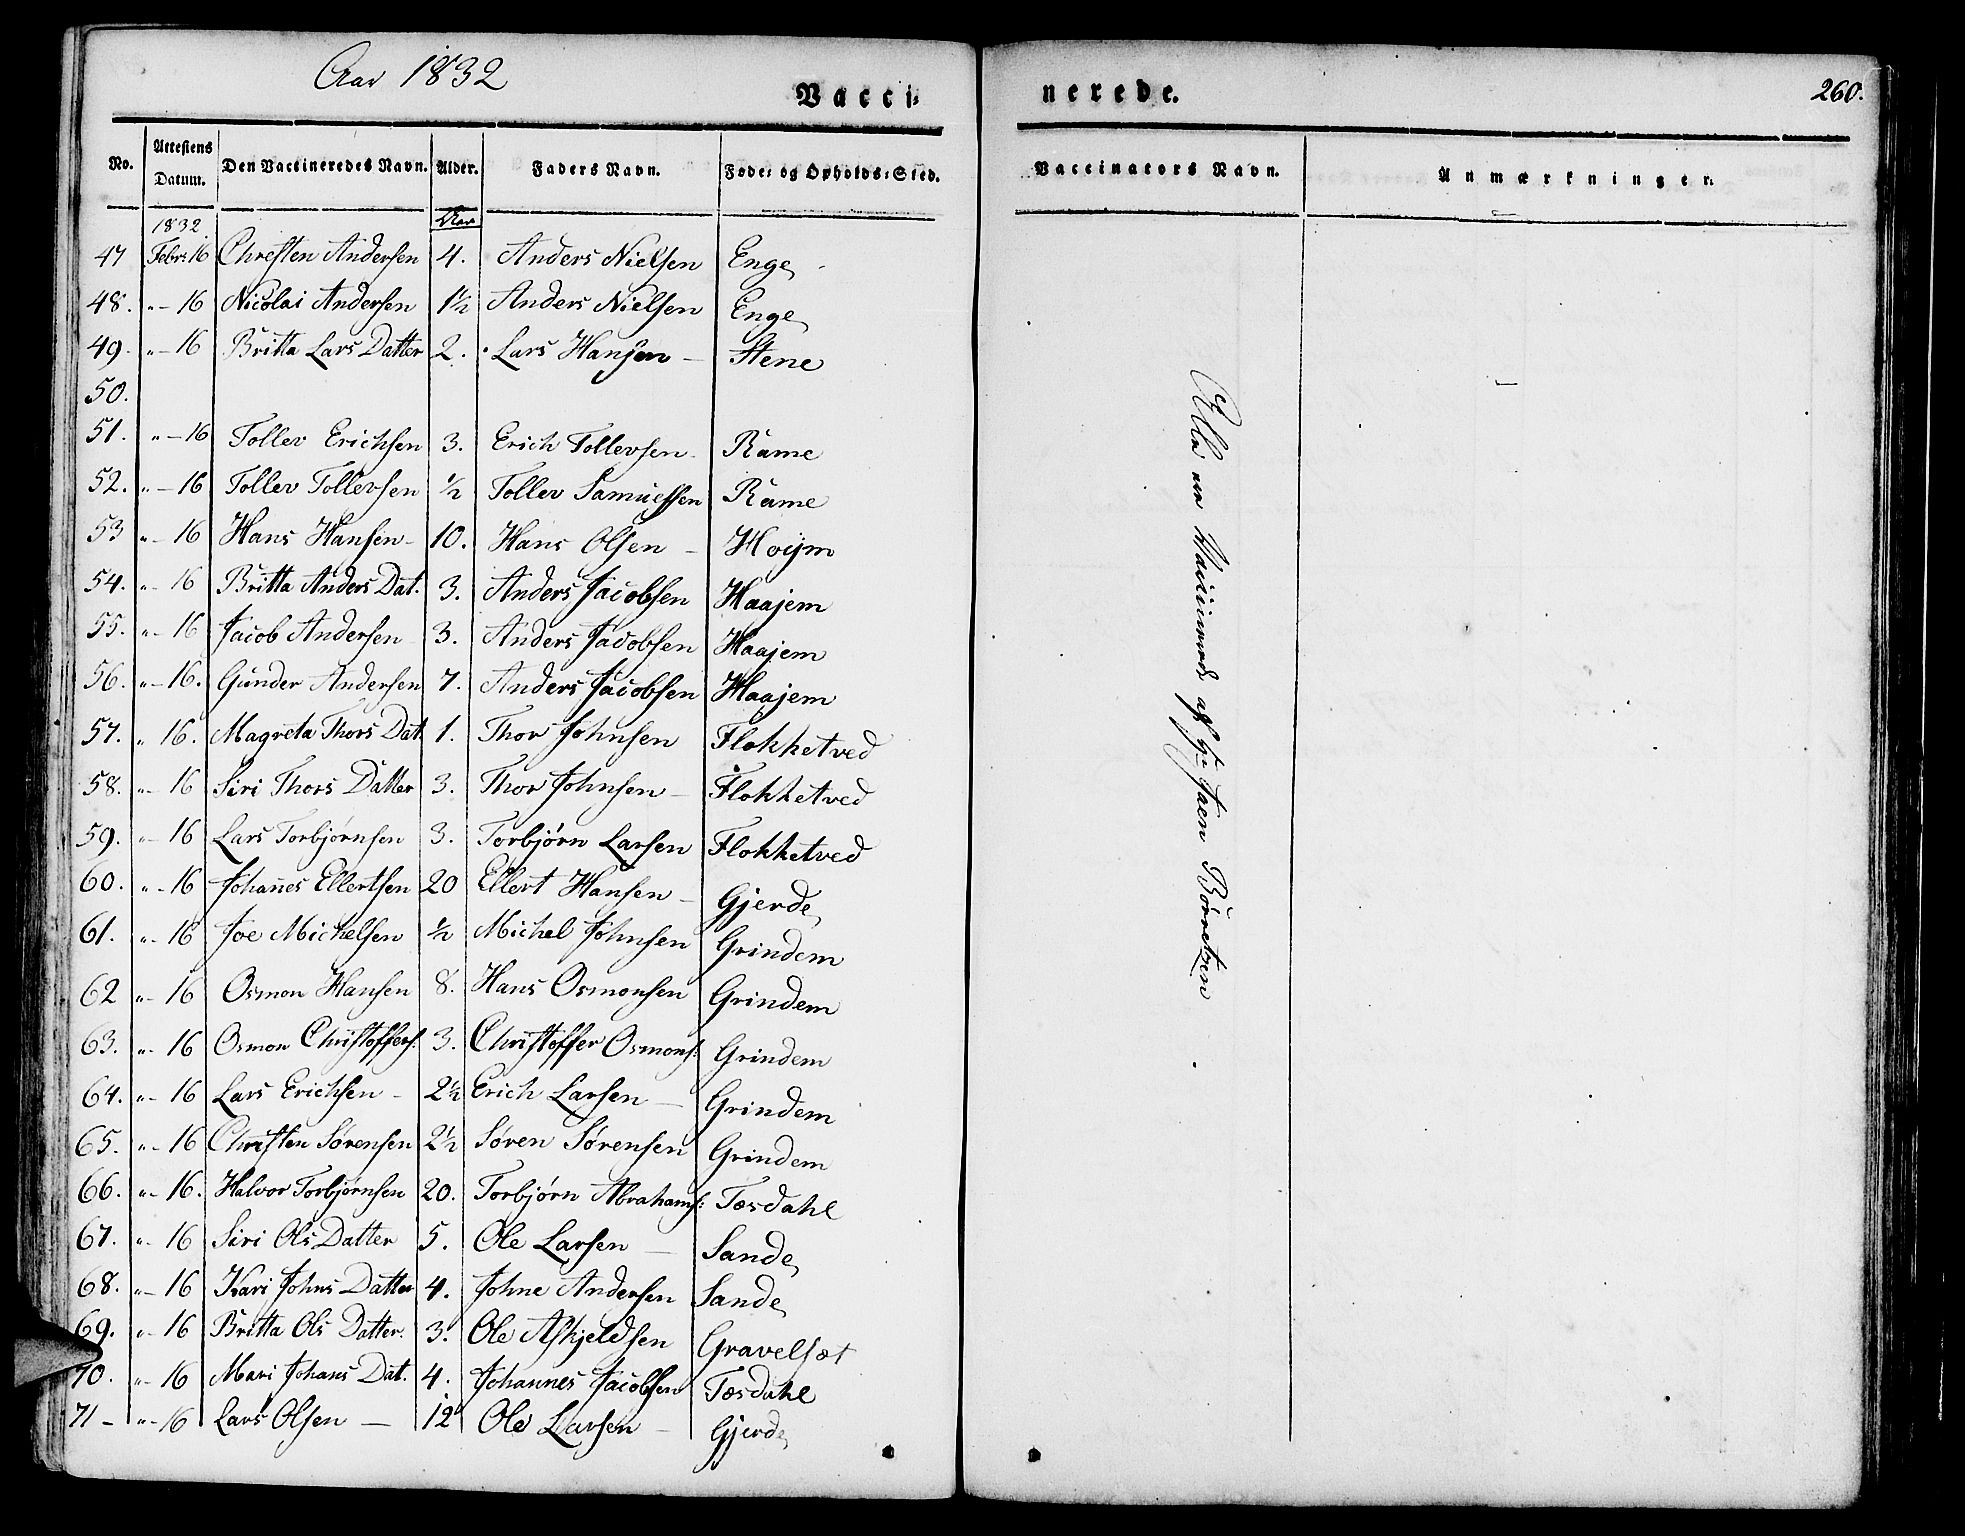 Aar 1832
Vacci-
nerede.
260.
No. Attestens Datum. Den Vaccineredes Navn. Alder. Faders Navn. Føde- og Opholds-Sted. Vaccinators Navn. Anmærkninger.
1832. Aar
47 Febr: 16 Christen Andersen 4. Anders Nielsen Enge
48. " - 16 Nicolai Andersen 1½ Anders Nielsen Enge
49. " - 16 Britta Lars Datter 2. Lars Hansen - Stene
50.
51. " - 16 Tollev Erichsen 3. Erich Tollevsen - Rame
52. " - 16 Tollev Tollevsen ½ Tollev Samuelsen Rame
53 " - 16 Hans Hansen - 10. Hans Olsen - Hoÿm
54. " - 16 Britta Anders Dat. 3. Anders Jacobsen Haajem
55. " - 16 Jacob Andersen 3. Anders Jacobsen Haajem
56. " - 16. Gunder Andersen 7. Anders Jacobsen Haajem
57. " 16. Magreta Thors Dat. 1. Thor Johnsen Flokketved
58. " - 16 Siri Thors Datter 3. Thor Johnsen - Flokketved
59. " - 16 Lars Torbjørnsen 3. Torbjørn Larsen Flokketved
60. " - 16 Johannes Ellertsen 20 Ellert Hansen - Gjerde
61. " - 16 Joe Michelsen ½ Michel Johnsen Grindem
62 " - 16 Osmon Hansen 8. Hans Osmonsen Grindem
63. " - 16 Osmon Christoffers: 3. Christoffer Osmons: Grindem
64. " - 16 Lars Erichsen - 2½ Erich Larsen - Grindem
65. " - 16 Christen Sørensen 2½ Søren Sørensen Grindem
66. " - 16. Halvor Torbjørnsen 20. Torbjørn Abrahams: Tæsdahl
67. " - 16 Siri Ols Datter 5. Ole Larsen - Sande
68. " - 16 Kari Johns Datter 4. Johne Andersen Sande
69. " - 16 Britta Ols Datter. 3. Ole Askjeldsen Gravelsæt
70. " - 16 Mari Johans Dat. 4. Johannes Jacobsen Tæsdahl
71 - " - 16 Lars Olsen - 12 Ole Larsen - Gjerde
Alle ere Vaccinerede af Hr: Børretzen